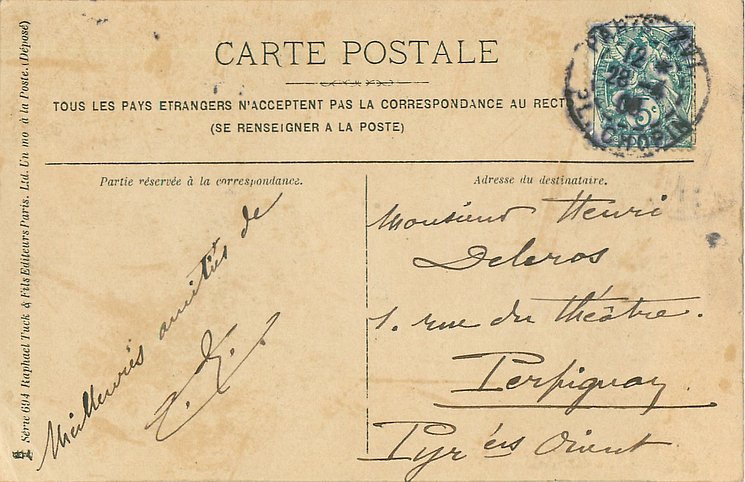 CARTE POSTALE
TOUS LES PAYS ETRANGERS N'ACCEPTENT PAS LA CORRESPONDANCE AU RECT
(SE RENSEIGNER A LA POSTE)
Partie réservée à la correspondance.
Meilleures amitiés de
Adresse du destinataire.
Monsieur Henri
Deleros
1. rue du théâtre.
Perpignan
Pyr ées Orient
Série 694 Raphael Tuck & Fils Editeurs Paris. Ltd. Un mo à la Poste. (Déposé)
PARIS
12
28
PL. CHOPIN